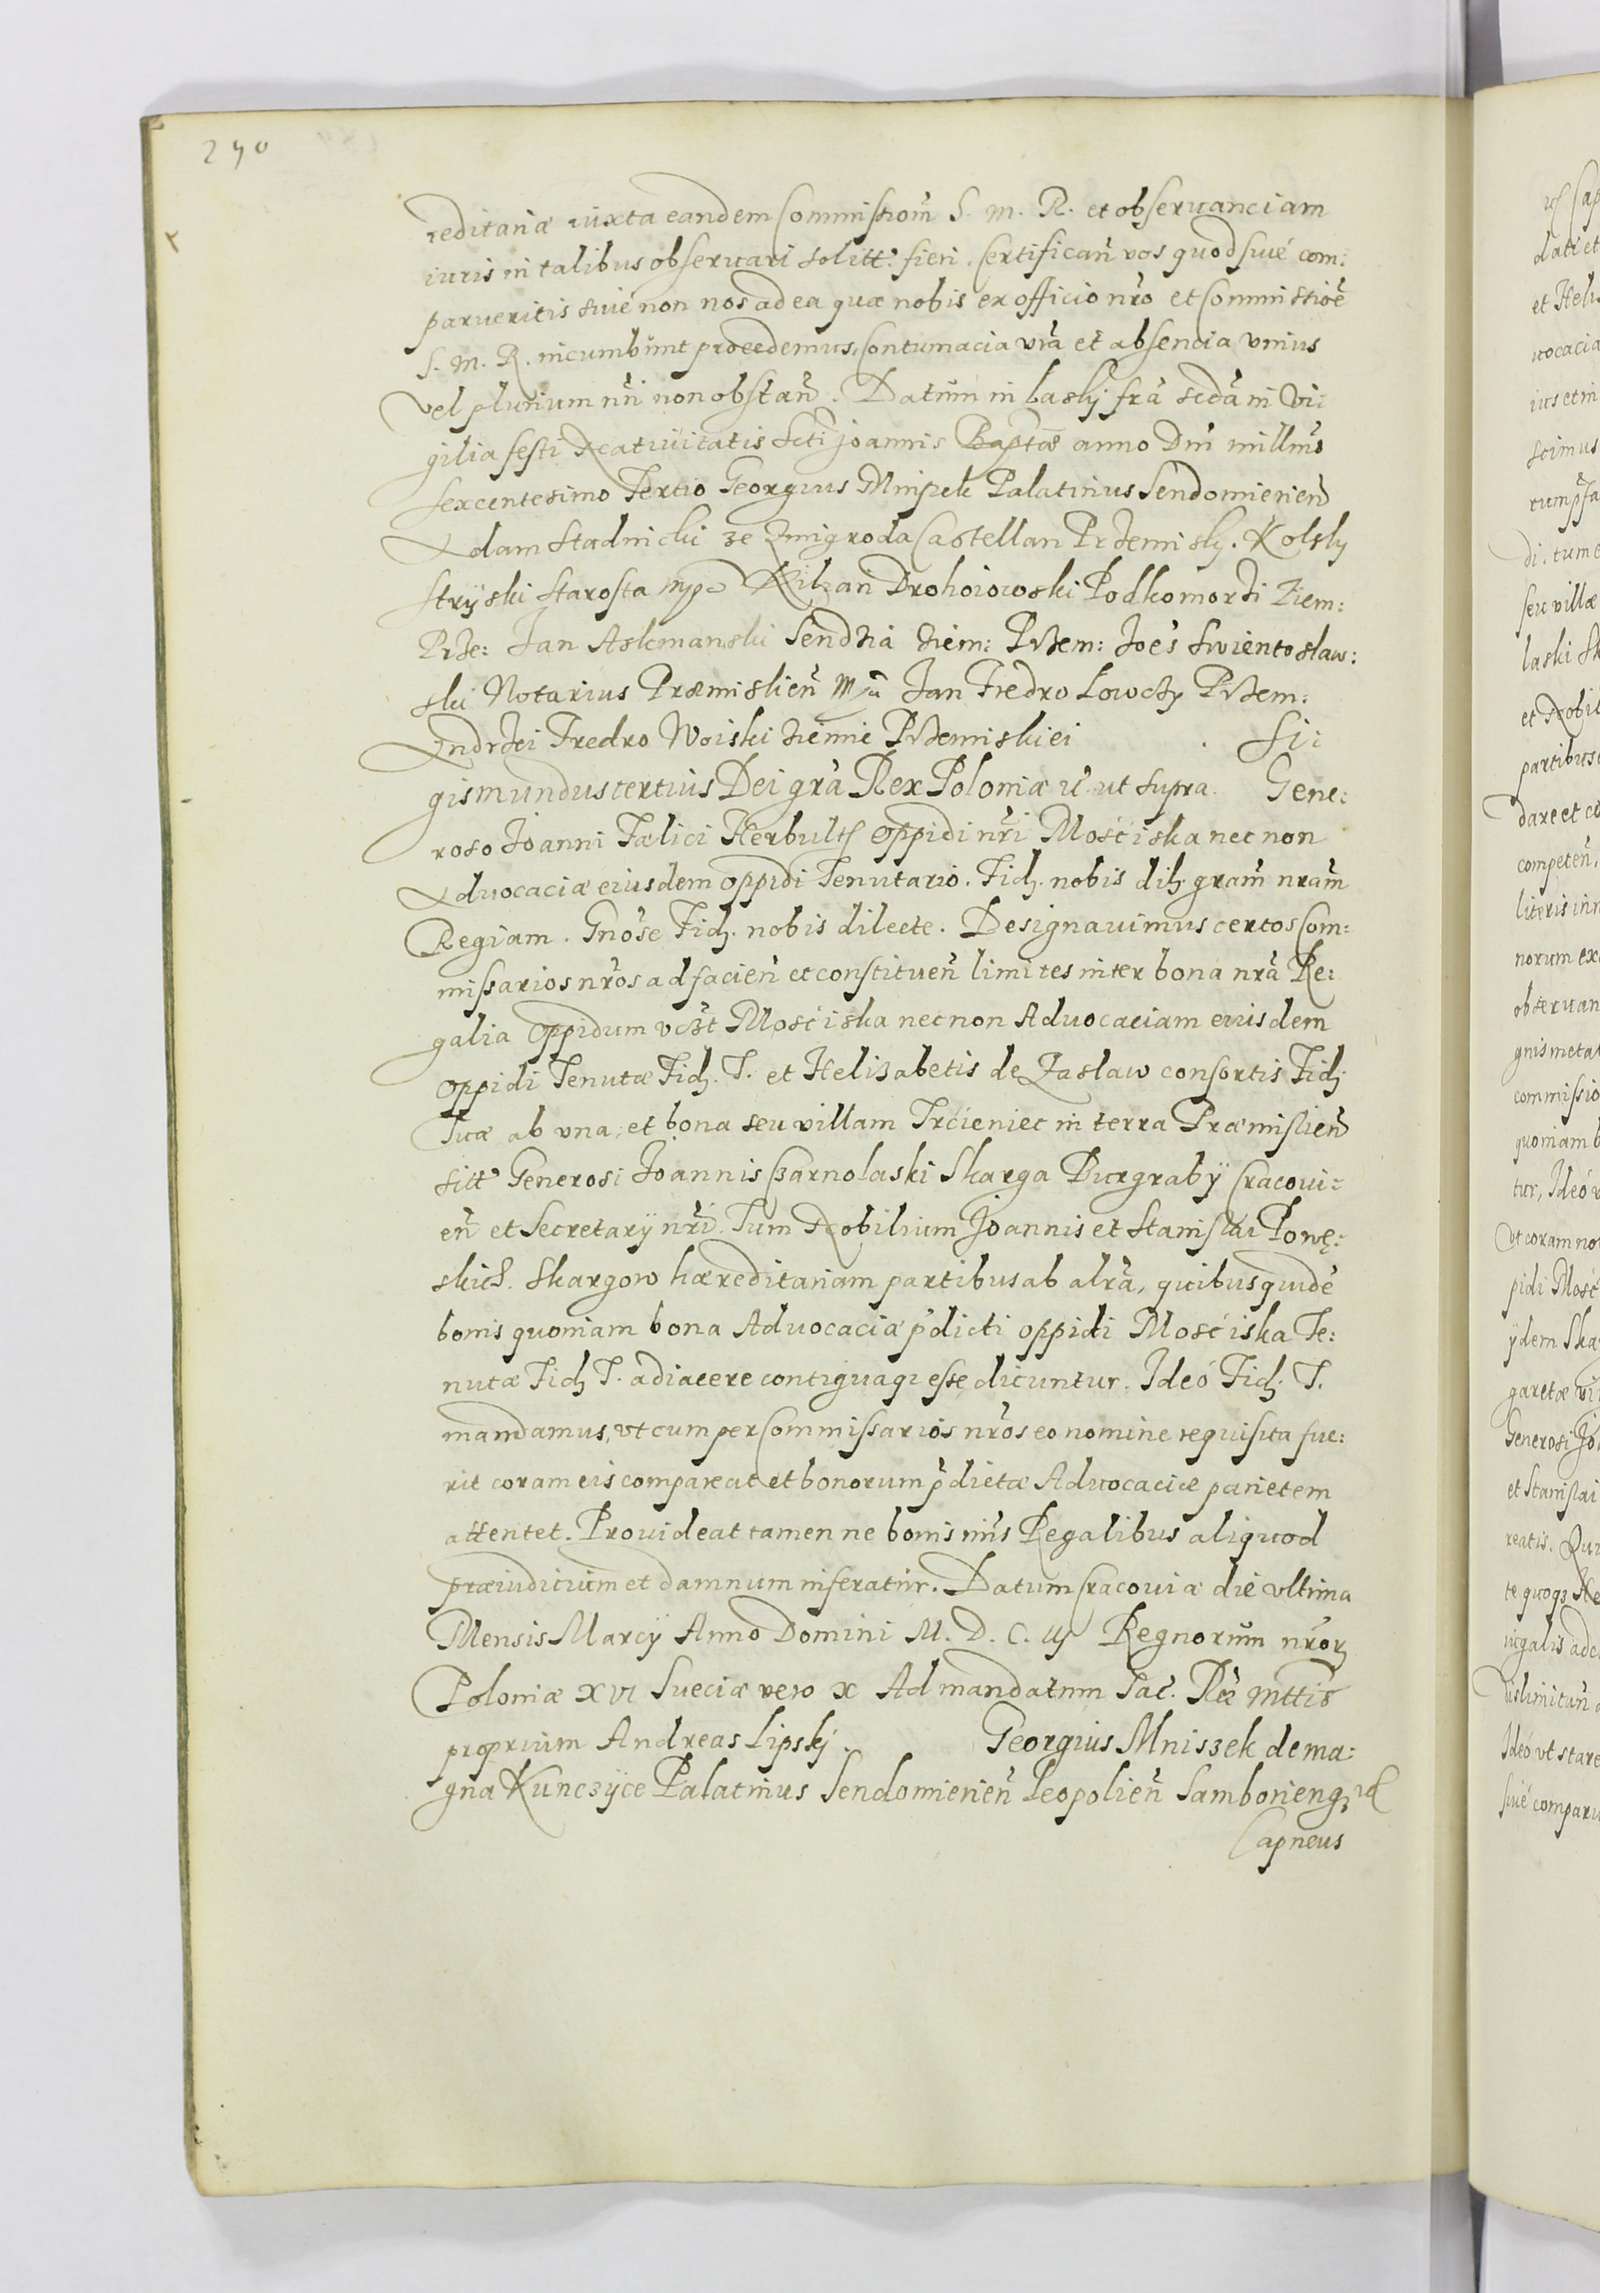 290
reditariæ iuxta eandem Commissiom̃ S. M. R. et obseruanciam
iuris in talibus obseruari solitt. fieri. Certifican̄ vos quod siué com:
parueritis siué non nos ad ea quæ nobis ex officio nr̃o et Commistioẽ
S. M. R. incumbunt procedemus, Contumacia vr̃a et absencia vnius
vel plurium nr̃i non obstan̄. Datum in Lasky fr̃a scd̃a in Vi:
gilia festi Natiuitatis Scti Joannis Baptæ anno Dni millm̃o
sexcentesimo Tertio Georgius Mnisek Palatinus Sendomierien̄
Adam Stadnicki ze Zmigroda Castellan Przemisky. Kolsky
Stryiski Starosta mp Kilzan Drohoiowski Podkomorzi Ziem:
Prze: Jan Askmanski Sendzia Ziem: Przem: Joẽs Swientoslaw:
ski Notarius Præmislien̄ Jan Fredro Lowczy Przem:
Andrzei Fredro Woiski Ziemie Przemiskiei . Si:
gismundus tertius Dei gr̃a Rex Poloniæ ut supra. Gene:
roso Joanni Fælici Herbult oppidi nr̃i Mośćiska nec non
Aduocaciæ eiusdem oppidi Tenutario. Fidj. nobis dilj. gram̃ nram̃
Regiam. Gnõse Fidj. nobis dilecte. Designauimus certos Com:
missarios nr̃os ad facien̄ et constituen̄ limites inter bona nr̃a Re:
galia oppidum vczt Mośćiska nec non Aduocaciam eiusdem
oppidi Tenutæ Fidj. T. et Helizabetis de Zaslaw consortis Fidj
Tuæ ab vna, et bona seu villam Trćieniec in terra Præmislien̄
sitt Generosi Joannis Czarnolaski Skarga Burgraby Cracoui:
en̄ et Secretarij nr̃i. Tum Nobilium Joannis et Stanislai Powę:
skich. Skargow hæreditariam partibus ab alr̃a, quibus quidẽ
bonis quoniam bona Aduocaciæ p̃dicti oppidi Mośćiska Te:
nutæ Fidj T. adiacere contiguaqz esse dicuntur. Ideó Fidj. T.
mandamus, vt cum per Commissarios nr̃os eo nomine requisita fue:
rit coram eis compareat et bonorum p̃dictæ Aduocaciæ parietem
attentet. Prouideat tamen ne bonis nr̃is Regalibus aliquod
præiudicium et damnum inferatur. Datum Cracouiæ die vltima
Mensis Marcij Anno Domini M. D. C. iij Regnorum nr̃orz
Poloniæ XVI Sueciæ vero X Ad mandatum Sac. Ræ mttis
proprium Andreas Lipskj. Georgius Mniszek de ma:
gna Kunczyce Palatinus Sendomierien̄ Leopolien̄ Samborienqz
Capneus